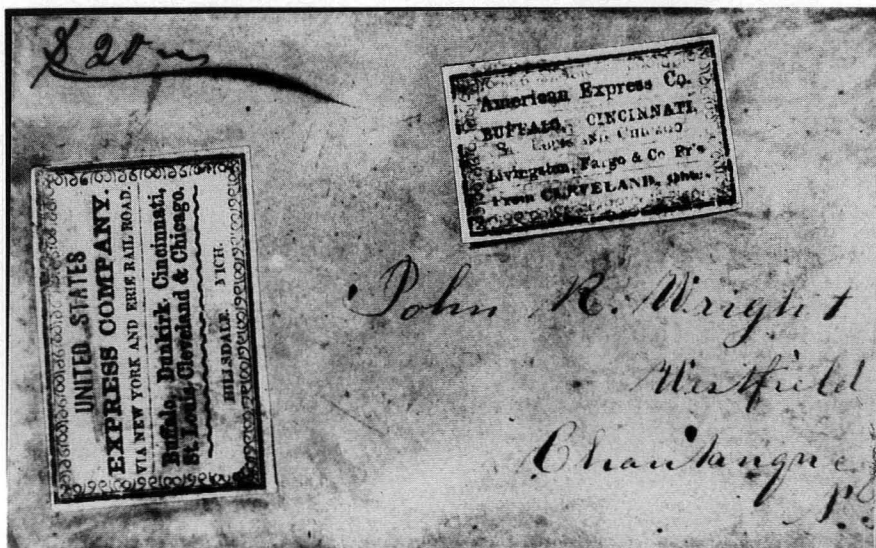 $20
American Express Co.
BUFFALO, CINCINNATI,
St. Louis and Chicago
Livingston, Fargo & Co Pr's
From CLEVELAND, Ohio.
UNITED STATES
EXPRESS COMPANY.
VIA NEW YORK AND ERIE RAIL ROAD.
Buffalo, Dunkirk, Cincinnati,
St. Louis, Cleveland & Chicago.
HILLSDALE, MICH.
John R. Wright
Westfield
Chautauque